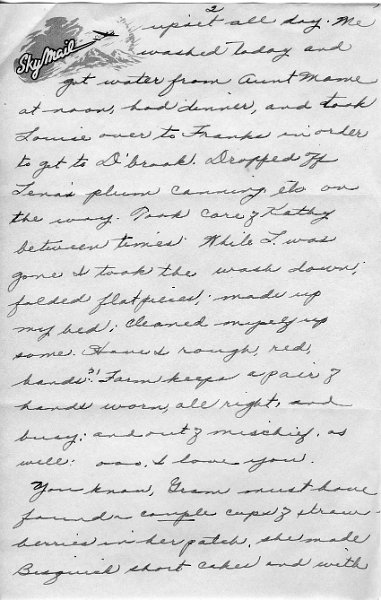 2
Sky Mail
upset all day. We
washed today and
got water from Aunt Mame
at noon, had dinner, and took
Louise over to Franks in order
to get to D'brook. Dropped off
Lena's plum canning, etc on
the way. Took care of Kathy
between times. While L. was
gone I took the wash down;
folded flatpieces; made up
my bed; cleaned myself up
some. Have I rough, red,
hands! Farm keeps a pair of
hands worn, all right, and
busy; and out of mischief, as
well. I love you.
You know, Gram must have
found a couple cups of straw-
berries in her patch, she made
Bisquick short cakes and with